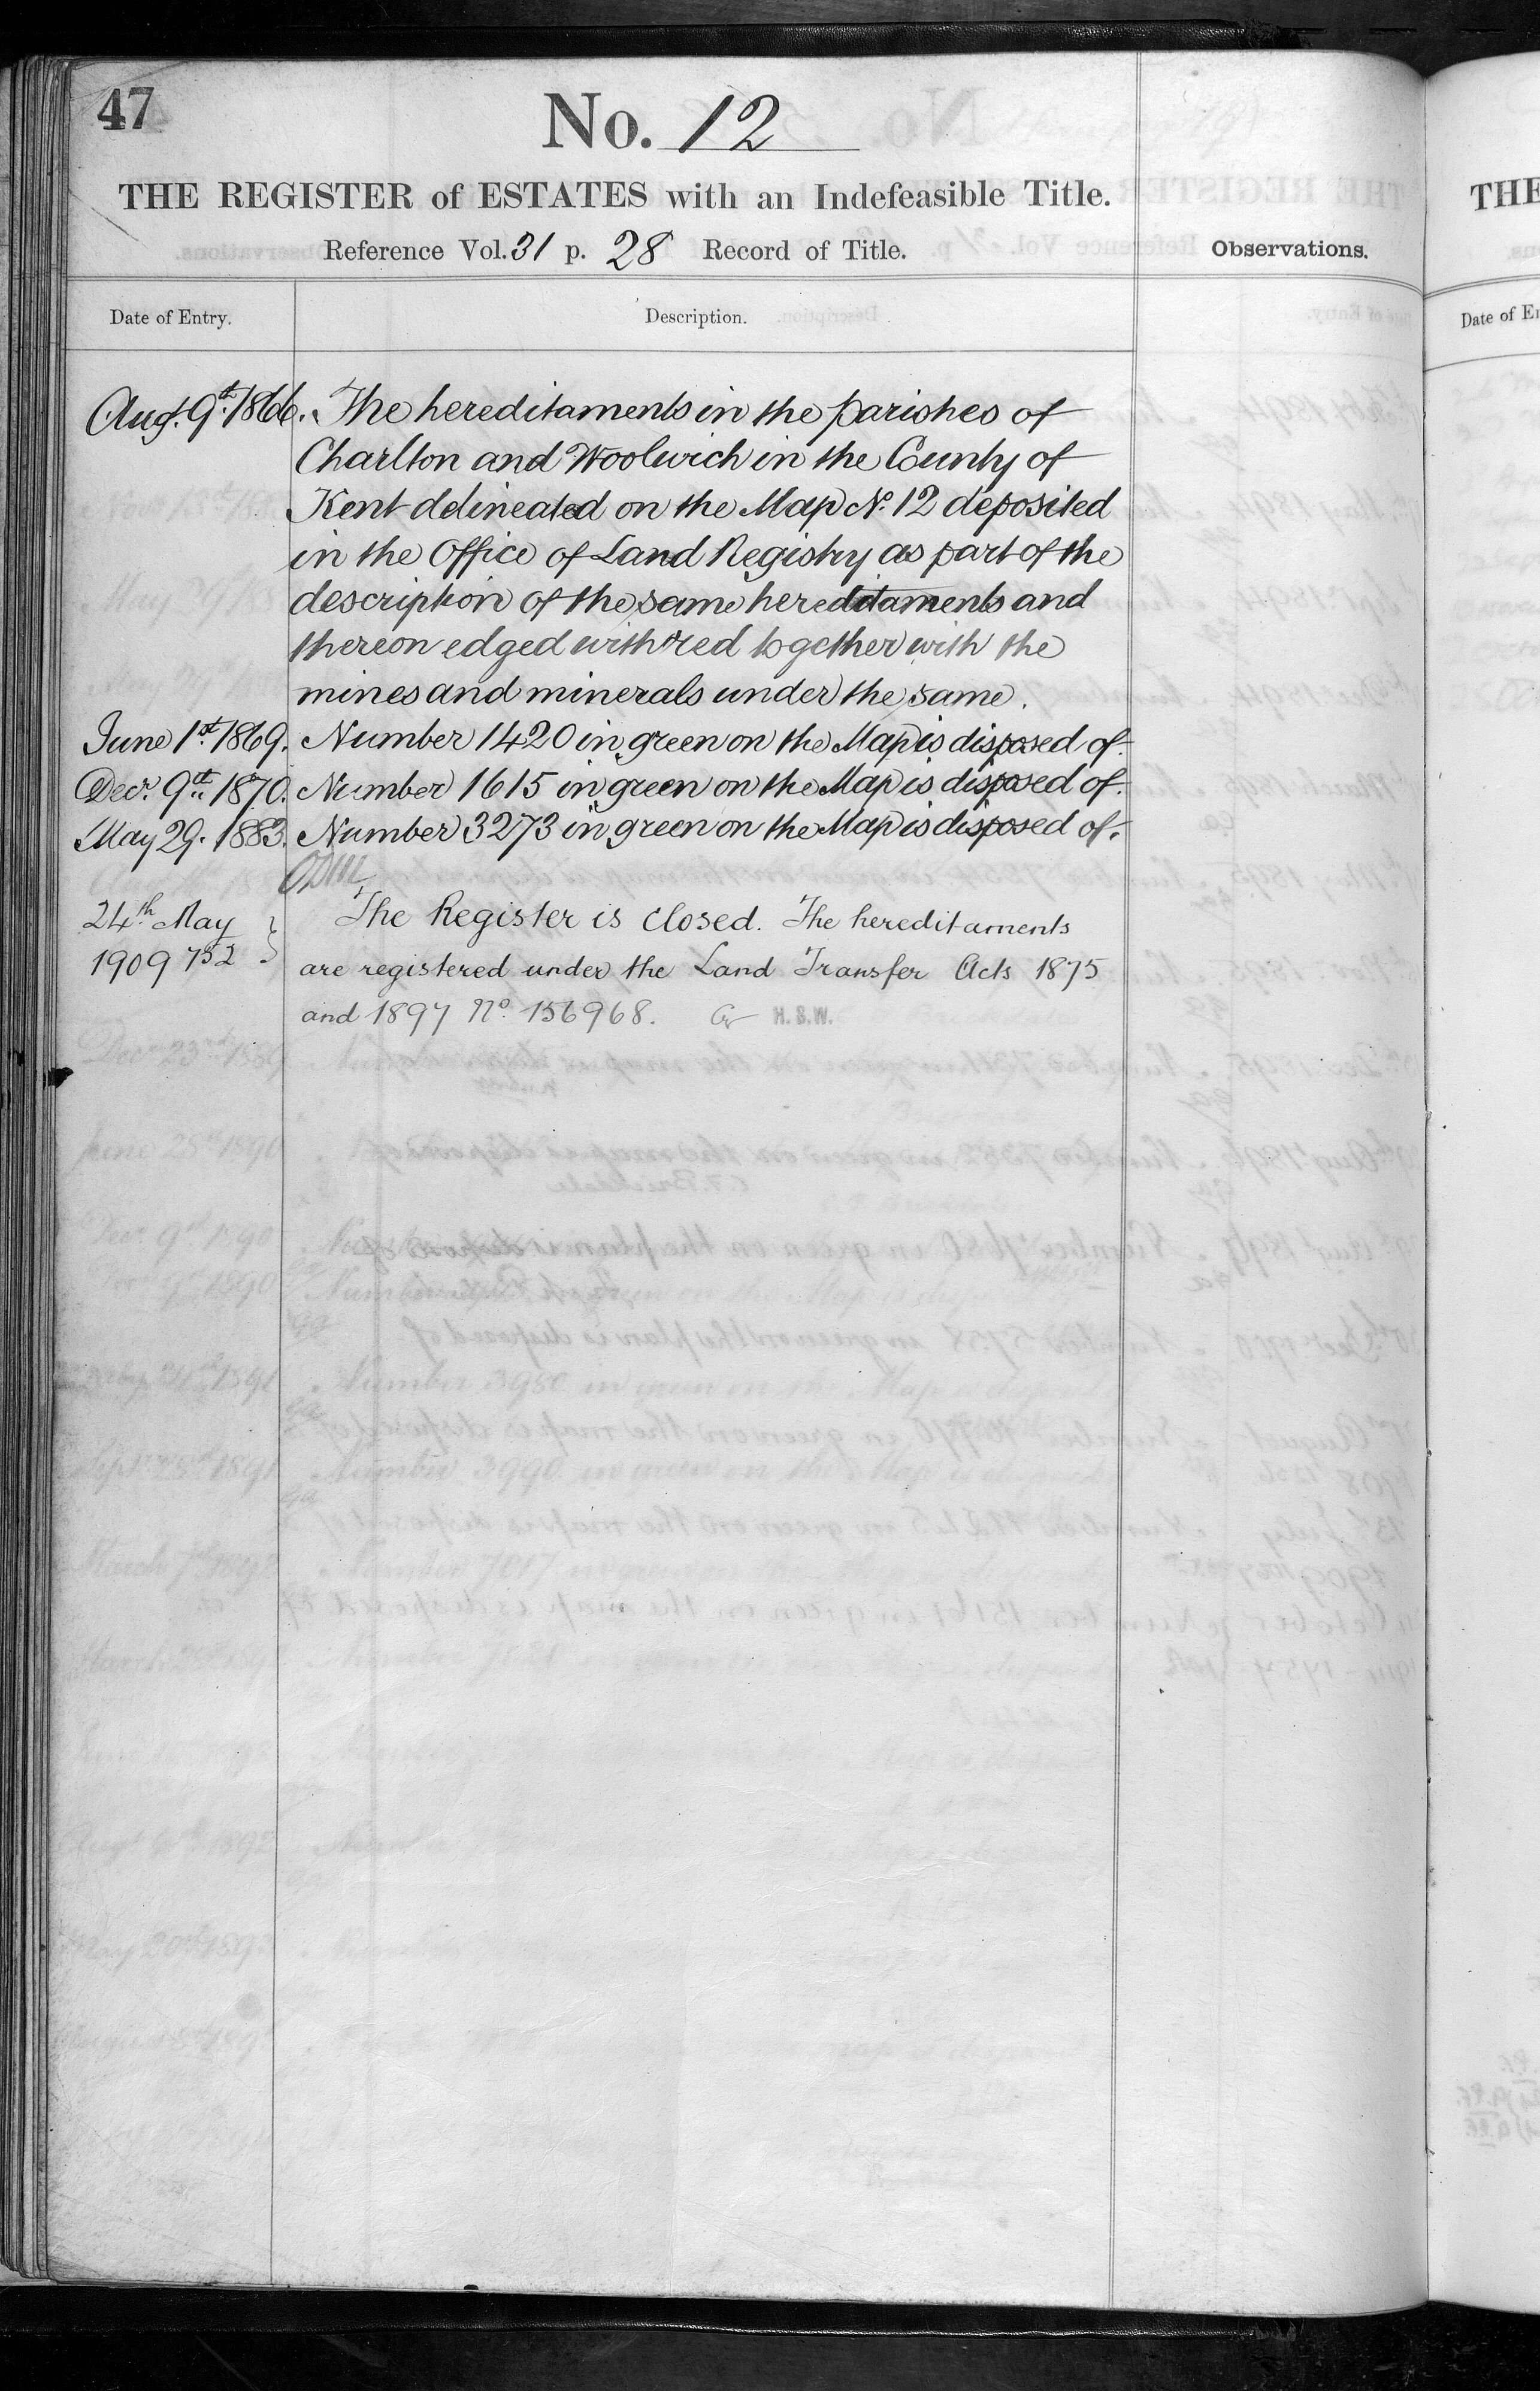 47
No. 12
THE REGISTER of ESTATES with an Indefeasible Title.
Reference Vol. 31 p. 28 Record of Title.
Observations.
Date of Entry.
Description.
Aug. 9th. 1866. The hereditaments in the parishes of
Charlton and Woolwich in the County of
Kent delineated on the Map No. 12 deposited
in the Office of Land Registry as part of the
description of the same hereditaments and
thereon edged with red together with the
mines and minerals under the same.
June 1st. 1869. Number 1420 in green on the Map is disposed of.
Decr. 9th. 1870. Number 1615 in green on the Map is disposed of.
May 29. 1883. Number 3273 in green on the Map is disposed of.
24th May The Register is closed. The hereditaments
1909 752 are registered under the Land Transfer Acts 1875
and 1897 No. 156968. H.S.W.
THE
Date of En